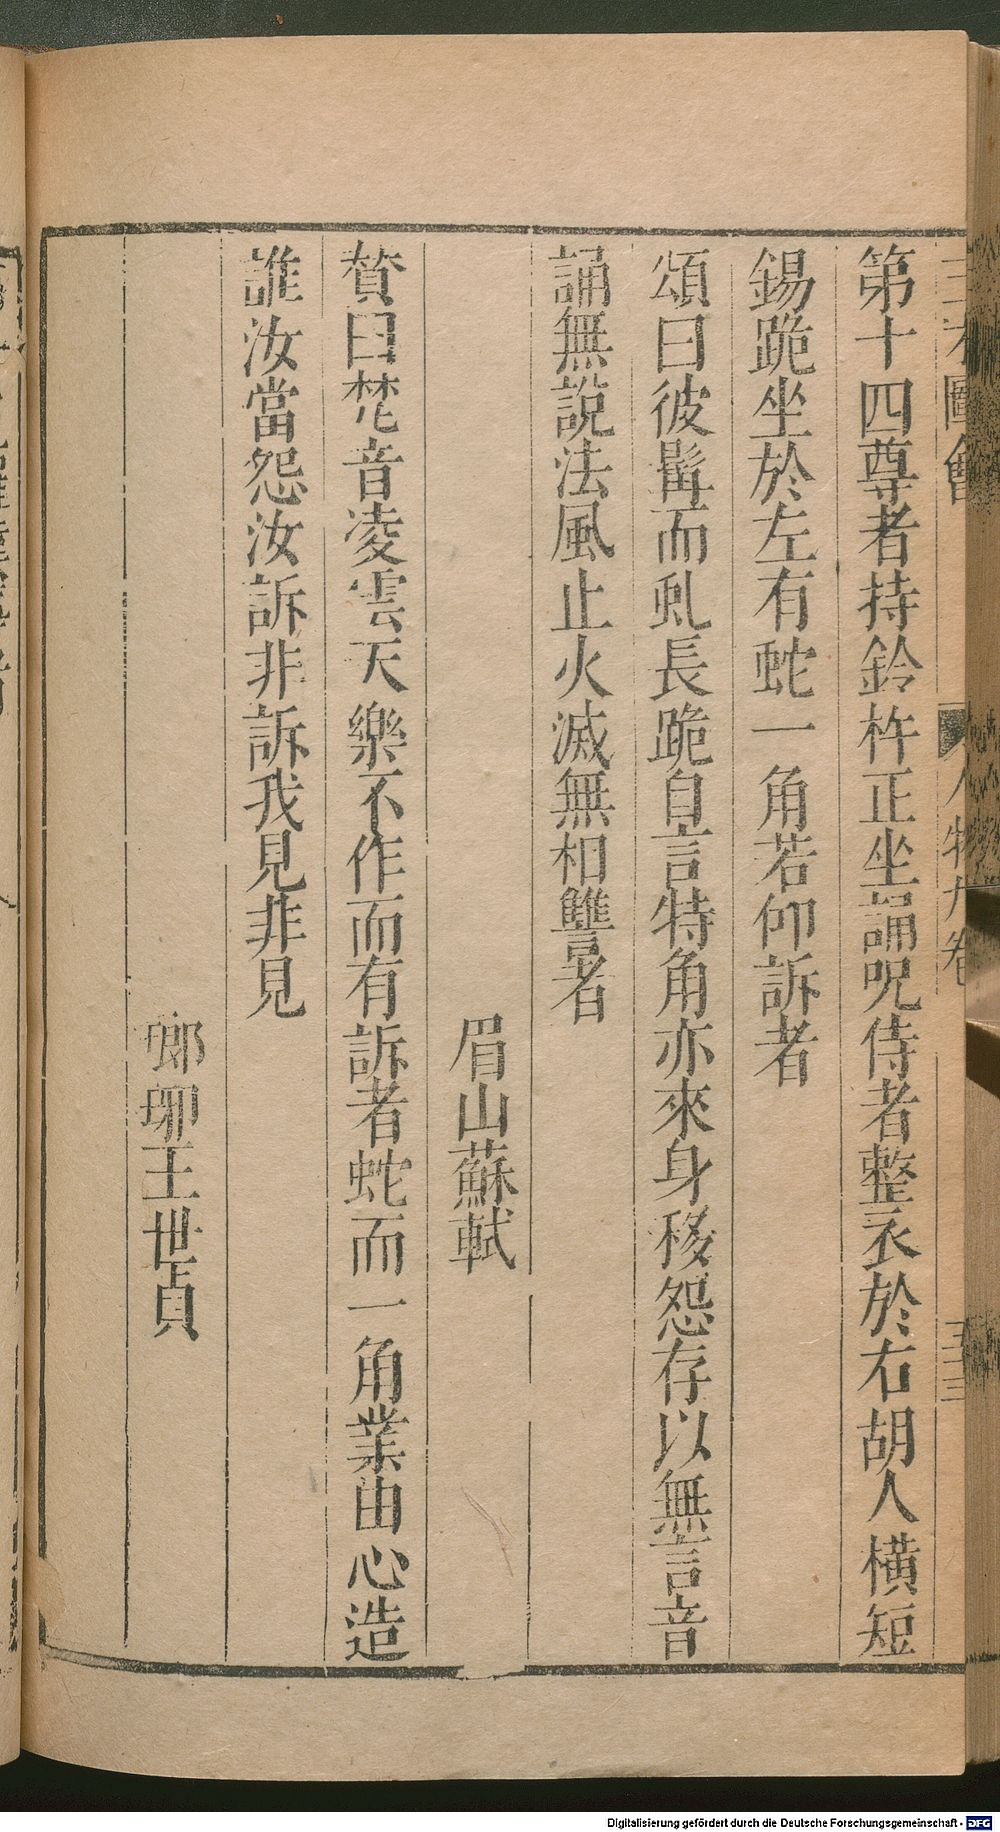 三才圖會
人物九卷
第十四尊者持鈴杵正坐誦呪侍者整衣於右胡人橫短
錫跪坐於左有蛇一角若仰訴者
頌曰彼髯而虬長跪自言特角亦來身移怨存以無言音
誦無說法風止火滅無相讐者
眉山蘇軾
贊曰梵音凌雲天樂不作而有訴者蛇而一角業由心造
誰汝當怨汝訴非訴我見非見
瑯琊王世貞
Digitalisierung gefördert durch die Deutsche Forschungsgemeinschaft - DFG